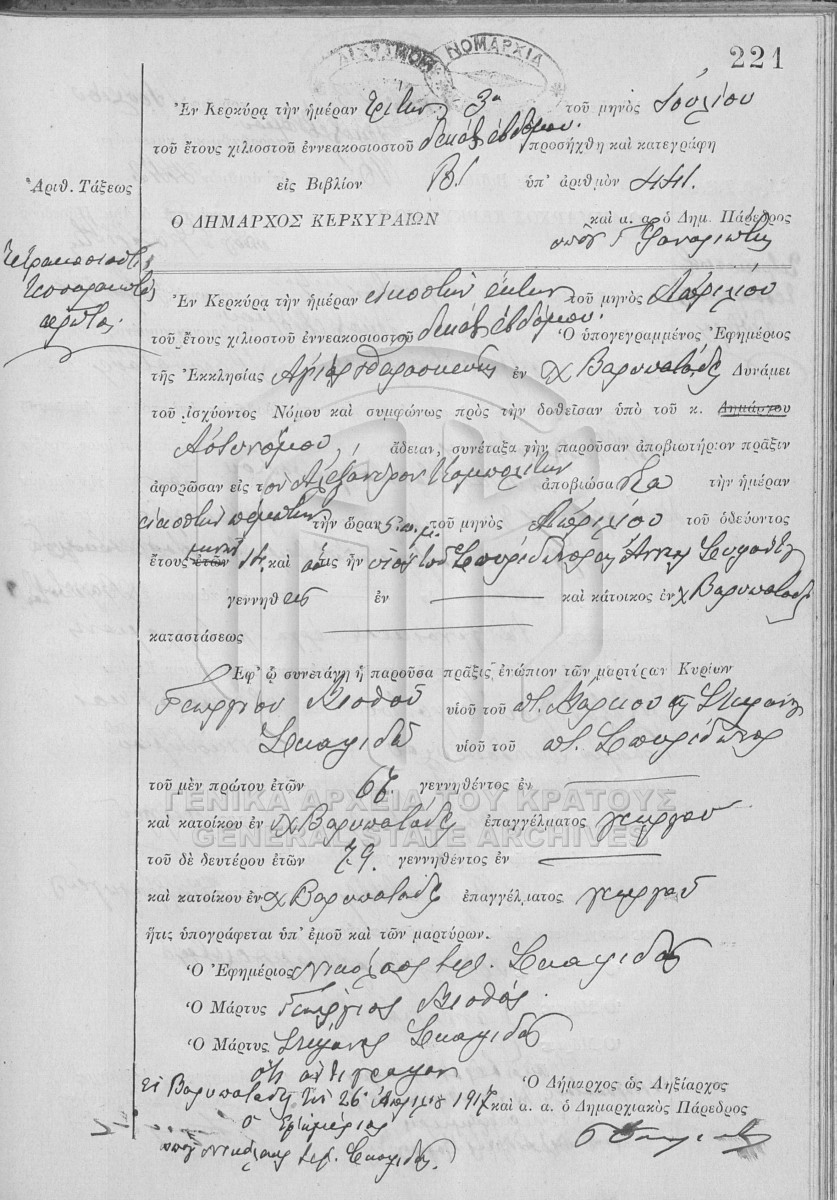 ΝΟΜΑΡΧΙΑ
221
Ἐν Κερκύρᾳ τὴν ἡμέραν τρίτην 3ην τοῦ μηνὸς Ἰουλίου
τοῦ ἔτους χιλιοστοῦ ἐννεακοσιοστοῦ δεκάτ. ἑβδόμου. προσήχθη καὶ κατεγράφη
Ἀριθ. Τάξεως εἰς Βιβλίον Β/ ὑπ' ἀριθμὸν 441.
Ο ΔΗΜΑΡΧΟΣ ΚΕΡΚΥΡΑΙΩΝ καὶ α. α. ὁ Δημ. Πάρεδρος
Τετρακοσιοστὴ
Τεσσαρακοστὴ
πρώτη.
Ἐν Κερκύρᾳ τὴν ἡμέραν εἰκοστὴν ἕκτην τοῦ μηνὸς Ἀπριλίου
τοῦ ἔτους χιλιοστοῦ ἐννεακοσιοστοῦ δεκάτ. ἑβδόμου. Ὁ ὑπογεγραμμένος Ἐφημέριος
τῆς Ἐκκλησίας Ἁγίας Παρασκευῆς ἐν χ Βαρυπατάδες Δυνάμει
τοῦ ἰσχύοντος Νόμου καὶ συμφώνως πρὸς τὴν δοθεῖσαν ὑπὸ τοῦ κ. Δημάρχου
Ἀστυνόμου, ἄδειαν, συνέταξα τὴν παροῦσαν ἀποβιωτήριον πρᾶξιν
ἀφορῶσαν εἰς τὸν Ἀλέξανδρον ἀποβιώσαντα τὴν ἡμέραν
εἰκοστὴν πέμπτην τὴν ὥραν 5 π.μ. τοῦ μηνὸς Ἀπριλίου τοῦ ὁδεύοντος
ἔτους ἐτῶν μηνῶν 14, καὶ ὅστις ἦν υἱὸς τοῦ Σπυρίδωνος καὶ Ἄννης
γεννηθεὶς ἐν καὶ κάτοικος ἐν χ Βαρυπατάδες
καταστάσεως
Ἐφ' ᾧ συνετάγη ἡ παροῦσα πρᾶξις ἐνώπιον τῶν μαρτύρων Κυρίων
Γεωργίου υἱοῦ τοῦ ποτ. Μάρκου καὶ Στεφάνου
υἱοῦ τοῦ ποτ. Σπυρίδωνος
τοῦ μὲν πρώτου ἐτῶν 67. γεννηθέντος ἐν
ΓΕΝΙΚΑ ΑΡΧΕΙΑ ΤΟΥ ΚΡΑΤΟΥΣ
καὶ κατοίκου ἐν χ Βαρυπατάδες ἐπαγγέλματος γεωργοῦ
GENERAL STATE ARCHIVES
τοῦ δὲ δευτέρου ἐτῶν 79 γεννηθέντος ἐν
καὶ κατοίκου ἐν χ Βαρυπατάδες ἐπαγγέλματος γεωργοῦ
ἥτις ὑπογράφεται ὑπ' ἐμοῦ καὶ τῶν μαρτύρων.
Ὁ Ἐφημέριος Νικόλαος ἱερ.
Ὁ Μάρτυς Γεώργιος
Ὁ Μάρτυς Στέφανος
ὅτι ἀντίγραφον
Ἐν Βαρυπατάδες τῇ 26 Ἀπριλίου 1917
Ὁ Δήμαρχος ὡς Ληξίαρχος
καὶ α. α. ὁ Δημαρχιακὸς Πάρεδρος
ὁ Ἐφημέριος
ὑπογ Νικόλαος ἱερ.